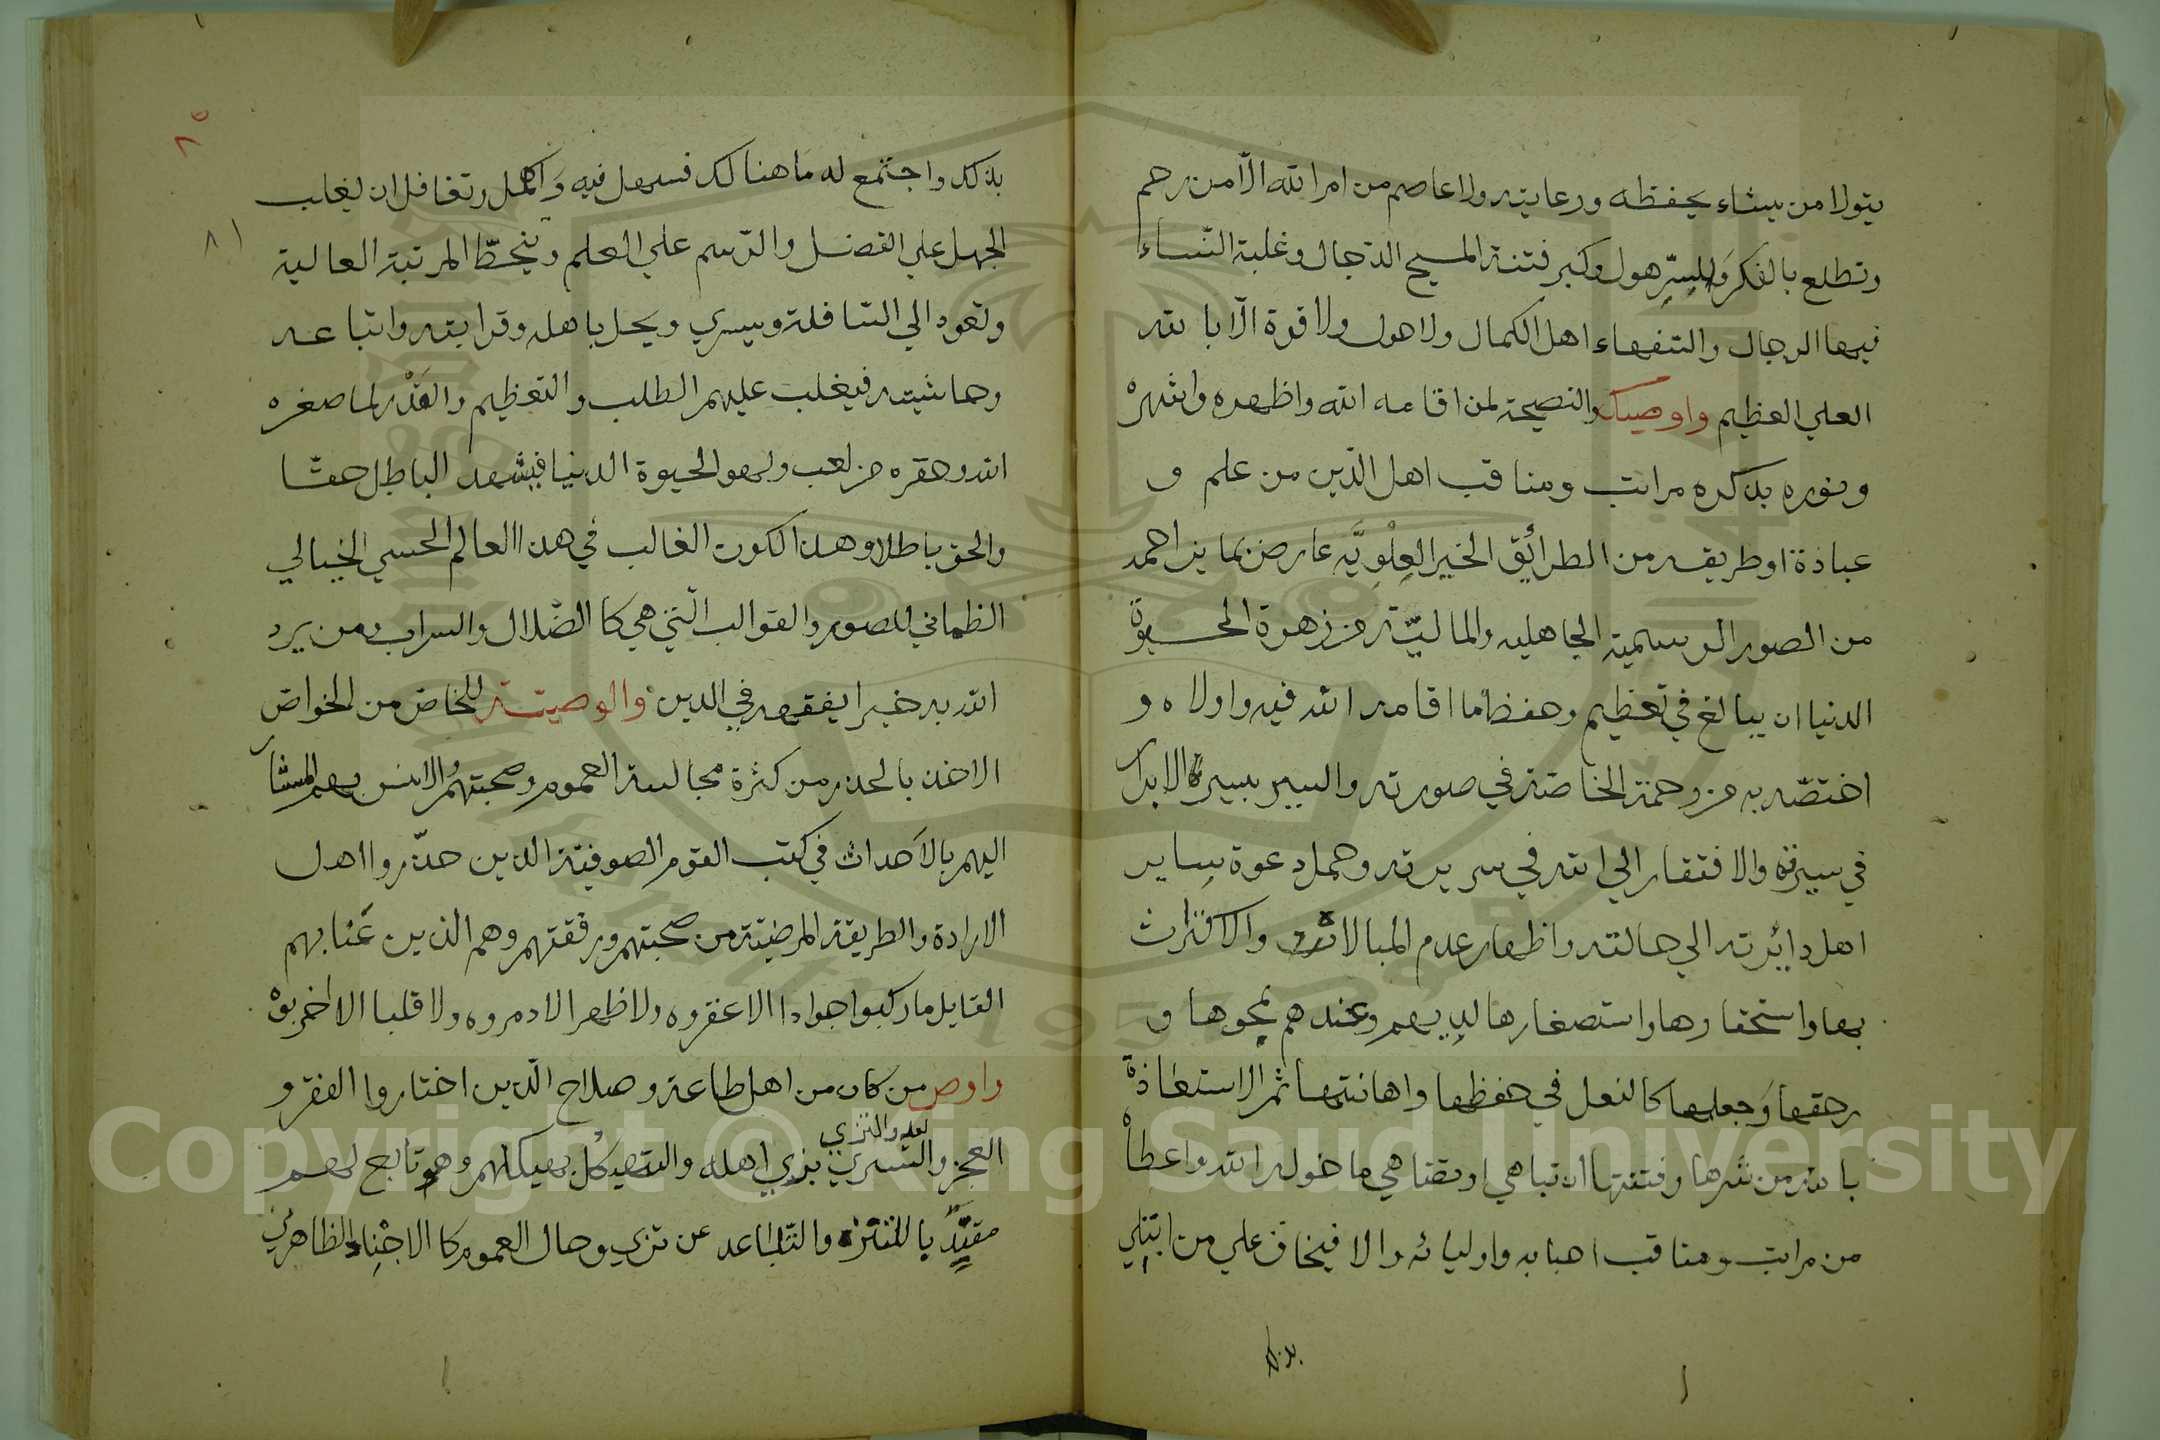 يتولا من يشاء بحفظه ورعايته ولا عاصم من امر الله الّا من رحم
وتطلع بالفكر والسرّ هول وكبر فتنة المسيح الدّجال وغلبة النّساء
فيها الرجال والسّفهاء اهل الكمال ولا حول ولا قوة الّا بالله
العلي العظيم واوصيك والنصيحة لمن اقامه الله واظهره واشهره
ونوره بذكره مراتب ومناقب اهل الدّين من علم و
عبادة او طريقه من الطرائق الخير العلويّه عارض بما يزاحمه
من الصور الرسمية الجاهليه والماليّة من زهرة الحيوة
الدنيا ان يبالغ في تعظيم وحفظ ما اقامه الله فيه واولاه و
اختصّه به من رحمة الخاصّة في صورته والسير بسيرة الابدال
في سيرته والافتقار الي الله في سريرته وحمل دعوة ساير
اهل دائرته الي حالته واظهار عدم المبالاة والاكتراث
بها واستحقارها واستصغارها لديهم وعندهم نحوها و
رحقها وجعلها كالنعل في حفظها واهانتها ثم الاستعاذة
بالله من شرها وفتنتها ان تباهي او تضاهي ما خوله الله واعطاه
من مراتب ومناقب احبابه واوليائه والا فيخاف علي من ابتلي
بذلك
٨٥
٨١
بذلك واجتمع له ما هنالك فسهل فيه واكمل وتغافل ان يغلب
الجهل علي الفضل والرّسم علي العلم وينحطّ المرتبة العالية
وتعود الي السّافلة ويسري ويحل باهله وقرابته واتباعه
وحاشيته فيغلب عليهم الطلب والتعظيم والقدر لما صغره
الله وحقره من لعب ولهو الحيوة الدنيا فيشهد الباطل حقّا
والحق باطلا وهذا الكون الغالب في هذا العالم الحسي الخيالي
الظماني للصور والقوالب الّتي هي كالضّلال والسراب ومن يرد
الله به خيرا يفقهه في الدين والوصيّة للخاصّ من الخواصّ
الاخذ بالحذر من كثرة مجالسة العموم وصحبتهم والانس بهم المشار
اليهم بالاحداث في كتب القوم الصوفيّة الذين حذّروا اهل
الارادة والطريقة المرضيّة من صحبتهم ورفقتهم وهم الذين عنا بهم
القايل ما ركبوا جوادا الا عقروه ولا ظهرا الا دمروه ولا قلبا الا اخربوه
واوص من كان من اهل طاعة وصلاح الّذين اختاروا الفقر و
العجز والتسري بزي اهله والتهيكل بهيكلهم وهو تابع لهم
والتزي
مقيّد بالتنزه والتباعد عن تزي وحال العموم كالاجناد الظاهرين